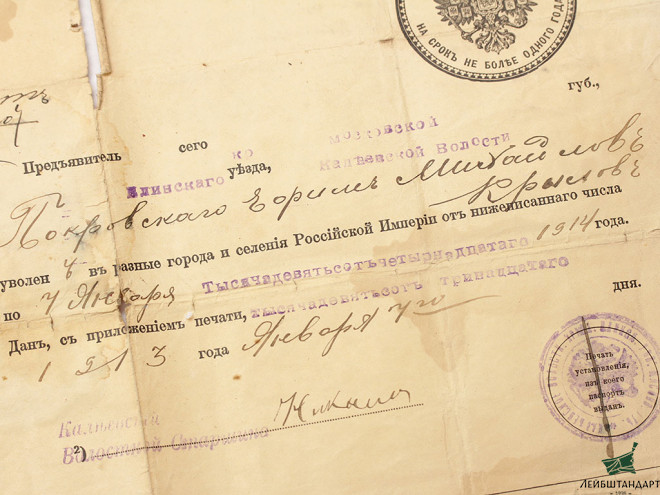 НА СРОКЪ НЕ БОЛѢЕ ОДНОГО ГОДА
губ.,
Предъявитель сего московской
Клинскаго уѣзда, Калѣевской Волости
Покровскаго Ефимъ Михайловъ
Крыловъ
уволен ъ въ разные города и селения Российской Империи отъ нижеписаннаго числа
по 7 Января Тысячадевятьсотъчетырнадцатаго 1914 года.
Данъ, съ приложеніемъ печати, тысячадевятьсотъ тринадцатаго
1913 года Января 7го дня.
Калѣевскій
Волостной Старшина
2)
Печать
установленія,
изъ коего
паспортъ
выданъ.
ЛЕЙБШТАНДАРТ